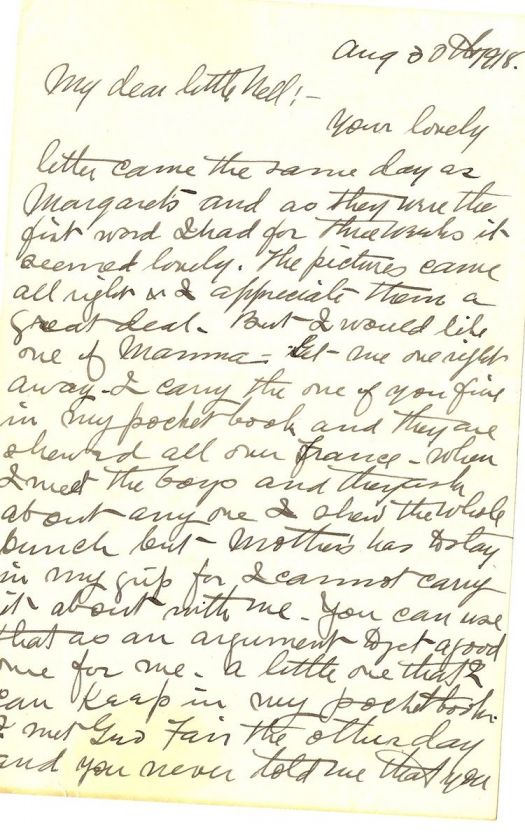 Aug 30th 1918.
My dear little Nell! -
Your lovely
letter came the same day as
Margarets and as they were the
first word I had for three weeks it
seemed lovely. The pictures came
all right & I appreciate them a
great deal. But I would like
one of Mamma - Get me one right
away - I carry the one of you five
in my pocket book and they are
showed all over France - when
I meet the boys and they ask
about any one I show the whole
bunch but Mothers has to stay
in my grip for I cannot carry
it about with me - You can use
that as an argument to get a good
one for me - a little one that I
can keep in my pocketbook.
I met Fair the other day
and you never told me that you